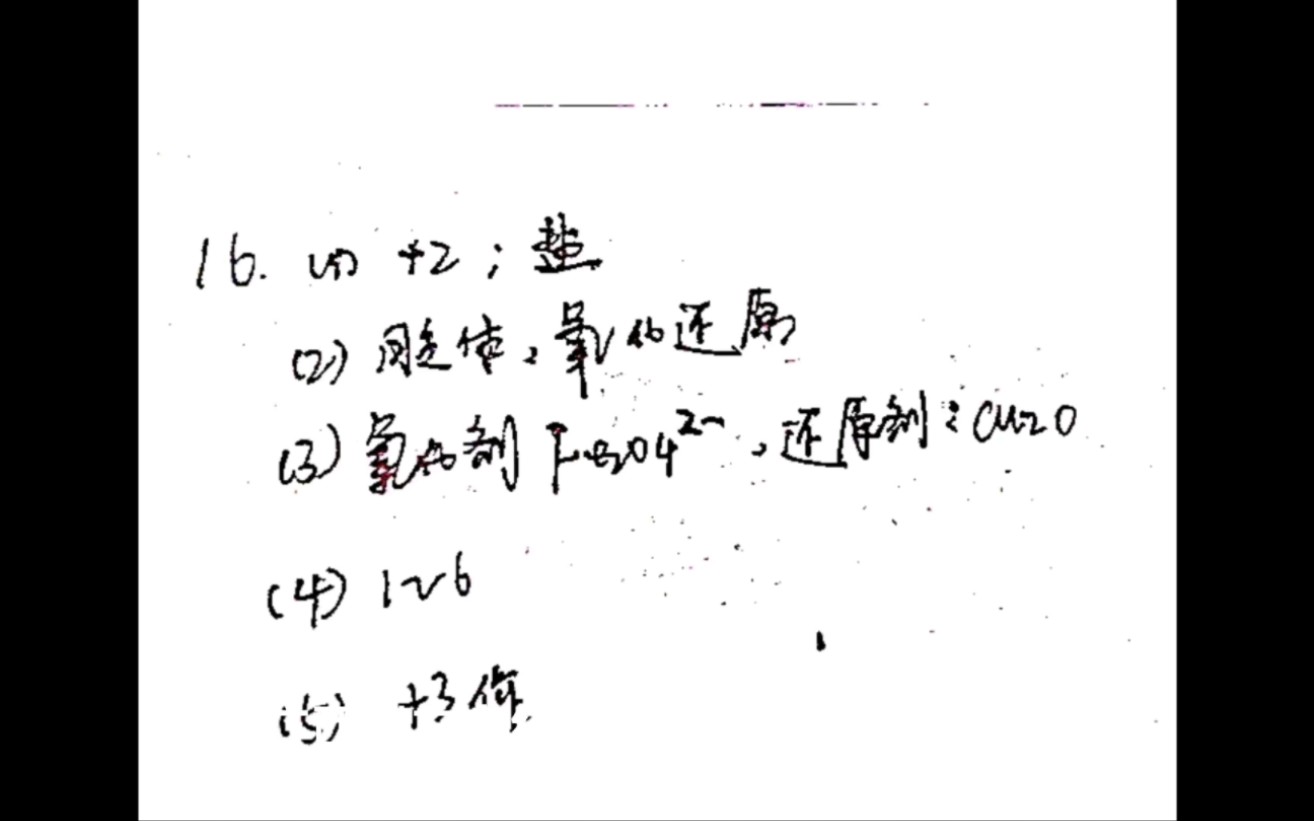 16. (1) +2;盐
(2) 胶体,氧化还原
(3) 氧化剂 FeO4²⁻,还原剂:Cu2O
(4) 1~6
(5) +3价